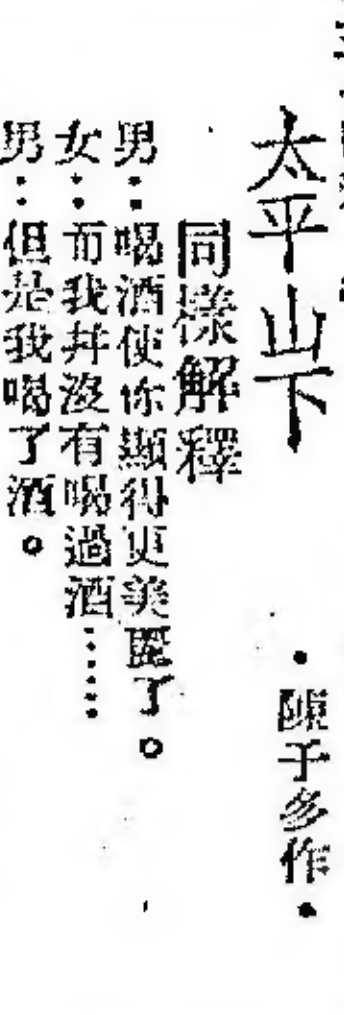 太平山下
•陳子多作•
同樣解釋
男：喝酒使你顯得更美麗了。
女：而我幷沒有喝過酒……
男：但是我喝了酒。